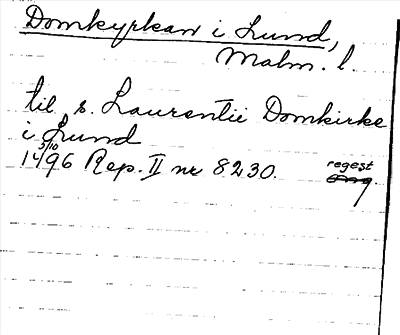 Domkyrkan i Lund,
Malm. l.
til s. Laurentii Domkirke
i Lund
5/10
1496 Rep. II nr 8230. regest